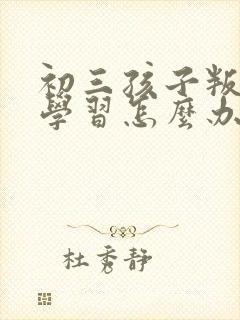 初三孩子叛
學習怎麼办
杜秀静